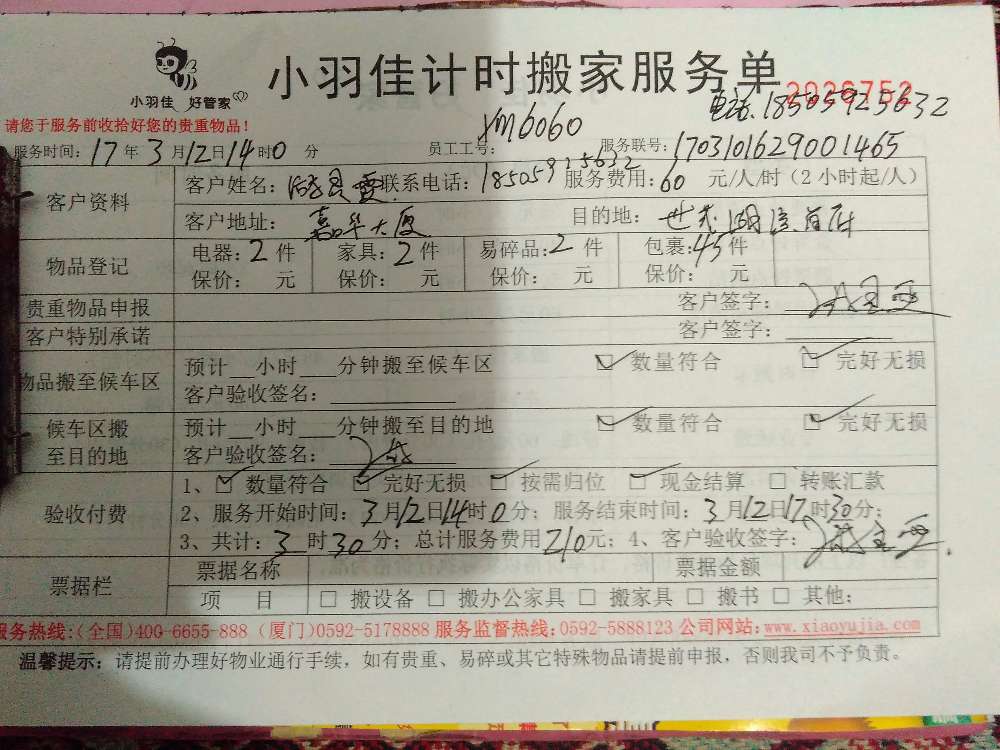 小羽佳 好管家
小羽佳计时搬家服务单
2026752
电话.18505925632
请您于服务前收拾好您的贵重物品！
xm6060
服务时间：17年3月12日14时0分 员工工号： 服务联号：1703101629001465
客户资料 客户姓名： 联系电话：18505925632 服务费用：60元/人/时（2小时起/人）
客户地址：嘉华大厦 目的地：世茂湖滨首府
物品登记 电器：2件 家具：2件 易碎品：2件 包裹：45件
保价： 元 保价： 元 保价： 元 保价： 元
贵重物品申报 客户签字：
客户特别承诺 客户签字：
物品搬至候车区 预计__小时___分钟搬至候车区 ☑ 数量符合 ☑ 完好无损
客户验收签名：
候车区搬至目的地 预计__小时___分钟搬至目的地 ☑ 数量符合 ☑ 完好无损
客户验收签名：
验收付费 1、☑ 数量符合 ☑ 完好无损 ☑ 按需归位 ☑ 现金结算 □ 转账汇款
2、服务开始时间：3月12日14时0分；服务结束时间：3月12日17时30分；
3、共计：3时30分；总计服务费用210元；4、客户验收签字：
票据栏 票据名称 票据金额
项 目 □ 搬设备 □ 搬办公家具 □ 搬家具 □ 搬书 □ 其他：
服务热线:(全国)400-6655-888 (厦门)0592-5178888 服务监督热线:0592-5888123 公司网站:www.xiaoyujia.com
温馨提示：请提前办理好物业通行手续，如有贵重、易碎或其它特殊物品请提前申报，否则我司不予负责。